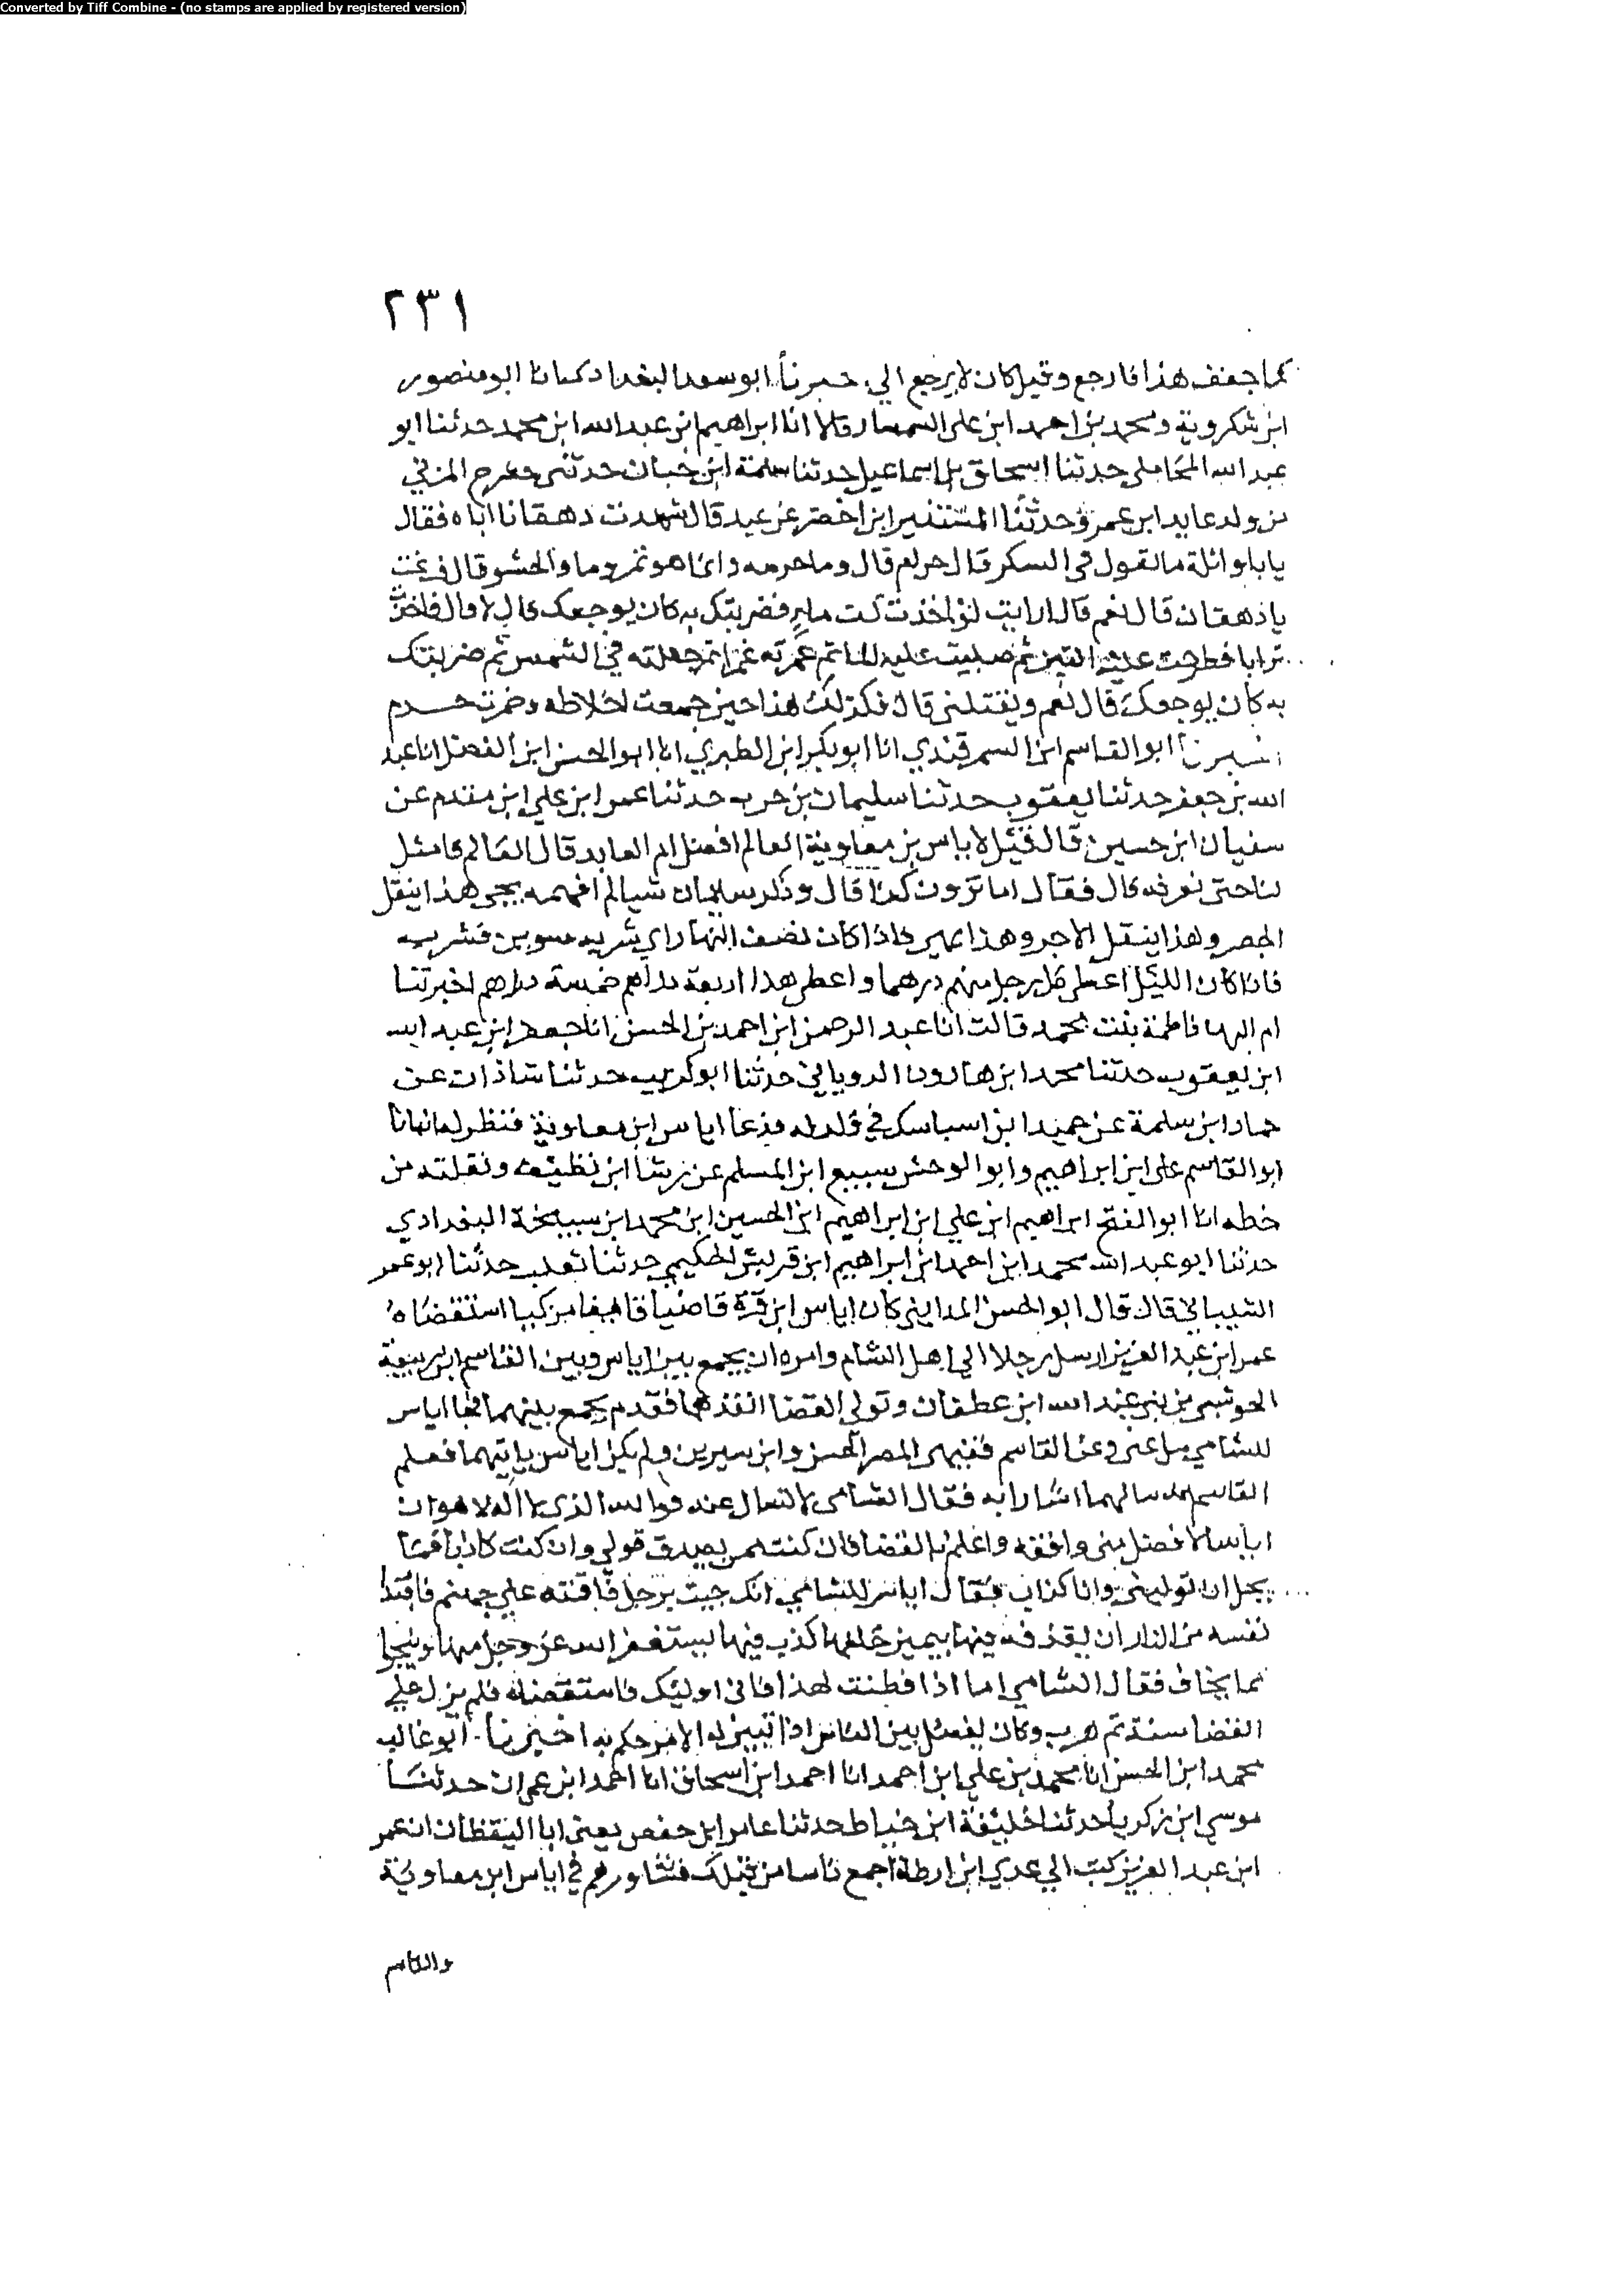 Converted by Tiff Combine - (no stamps are applied by registered version)
٢٣١
كما جفف هذا فارجع وقيل كان لا يرجع الي خبرنا ابو سعد البغدادي انا ابو منصور
ابن شكروية ومحمد بن احمد ابن علي السمسار قالا انا ابراهيم ابن عبد الله ابن محمد حدثنا ابو
عبد الله المحاملي حدثنا اسحاق بن اسماعيل حدثنا سلمة ابن حبان حدثني المزني
من ولد عايد ابن عمرو حدثنا المستنير ابن اخضر عن عيد قال شهدت دهقانا اتاه فقال
يا با واثلة ما تقول في السكر قال حرام قال وما حرمه وانما هو تمر وما والحشو قال فرغت
يا دهقان قال نعم قال ارايت لو اخذت كف ما فضربتك به كان يوجعك قال لا قال فاخذت
ترابا فطرحت عليه التبن ثم صببت عليه الما ثم غمرته غمرا ثم جعلته في الشمس ثم ضربتك
به كان يوجعك قال نعم ويقتلني قال فكذلك هذا حين جمعت اخلاطه وخمرت حرم
اخبرنا ابو القاسم ابن السمرقندي انا ابو بكر ابن الطبري انا ابو الحسن ابن الفضل انا عبد
الله بن جعفر حدثنا يعقوب حدثنا سليمان بن حرب حدثنا عمر ابن علي ابن مقدم عن
سفيان ابن حسين قال قيل لاياس بن معاوية العالم افضل ام العابد قال العالم قا مثل
لنا حتى نعرفه قال فقال اما ترون كذا قال وذكر سليمان شيا لم افهمه يجي هذا ينقل
الجص وهذا ينقل الاجر وهذا فاذا كان نصف النهار اي شربه سويق فشربه
فاذا كان الليل اعطي كل رجل منهم درهما واعطي هذا اربعة دراهم خمسة دراهم اخبرتنا
ام البها فاطمة بنت محمد قالت انا عبد الرحمن ابن احمد بن الحسن انا جعفر ابن عبد الله
ابن يعقوب حدثنا محمد ابن هارون الروياني حدثنا ابو كريب حدثنا شاذان عن
حماد ابن سلمة عن حميد ابن اسباسك في ولد له فدعا اياس ابن معاوية فنظر له انبانا
ابو القاسم علي ابن ابراهيم وابو الوحش سبيع ابن المسلم عن رشا ابن نظيف ونقلته من
خطه انا ابو الفتح ابراهيم ابن علي ابن ابراهيم ابن الحسين ابن محمد ابن سيبخة البغدادي
حدثنا ابو عبد الله محمد ابن احمد ابن ابراهيم ابن قريش الحكيمي حدثنا ثعلب حدثنا ابو عمر
الشيباني قال قال ابو الحسن المدايني كان اياس ابن قرة قاضيا استقضاه
عمر ابن عبد العزيز ارسل رجلا الي اهل الشام وامره ان يجمع بين اياس وبين القاسم ابن ربيعة
الحوشبي من بني عبد الله ابن غطفان وتولي القضا انفذهما فقدم يجمع بينهما فقا اياس
للشامي سل عني وعن القاسم فقيهي المصر الحسن وابن سيرين ولم يكن اياس ياتيهما فعلم
القاسم انه سالهما اشارا به فقال الشامي لا تسال عنه فوالله الذي لا اله الا هو ان
اياسا لافضل مني وافقه واعلم بالقضا فان كنت ممن يصدق قولي وان كنت كاذبا فما
يحل ان توليني وانا كذاب فقال اياس للشامي انك جيت برجل فاقمته علي جهنم فافتدا
نفسه من النار ان يقذفه فيها بيمين حلفها كذب فيها يستغفر الله عز وجل منها وينجوا
مما يخاف فقال الشامي اما اذا فطنت لهذا فاني اوليك فاستقضاه فلم يزل علي
القضا سنة ثم هرب وكان يفصل بين الناس اذا تبين له الامر حكم به اخبرنا ابو غالب
محمد ابن الحسن انا محمد بن علي ابن احمد انا احمد ابن اسحاق انا احمد ابن عمران حدثنا
موسي ابن زكريا حدثنا خليفة ابن خياط حدثنا عامر ابن حفص يعني ابا اليقظان ان عمر
ابن عبد العزيز كتب الي عدي ابن ارطاة اجمع ناسا من قبلك فشاورهم في اياس ابن معاوية
والقاسم